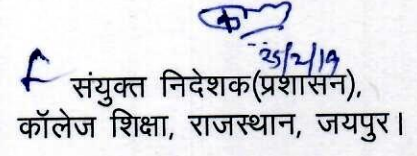 25/2/19
संयुक्त निदेशक(प्रशासन),
कॉलेज शिक्षा, राजस्थान, जयपुर।